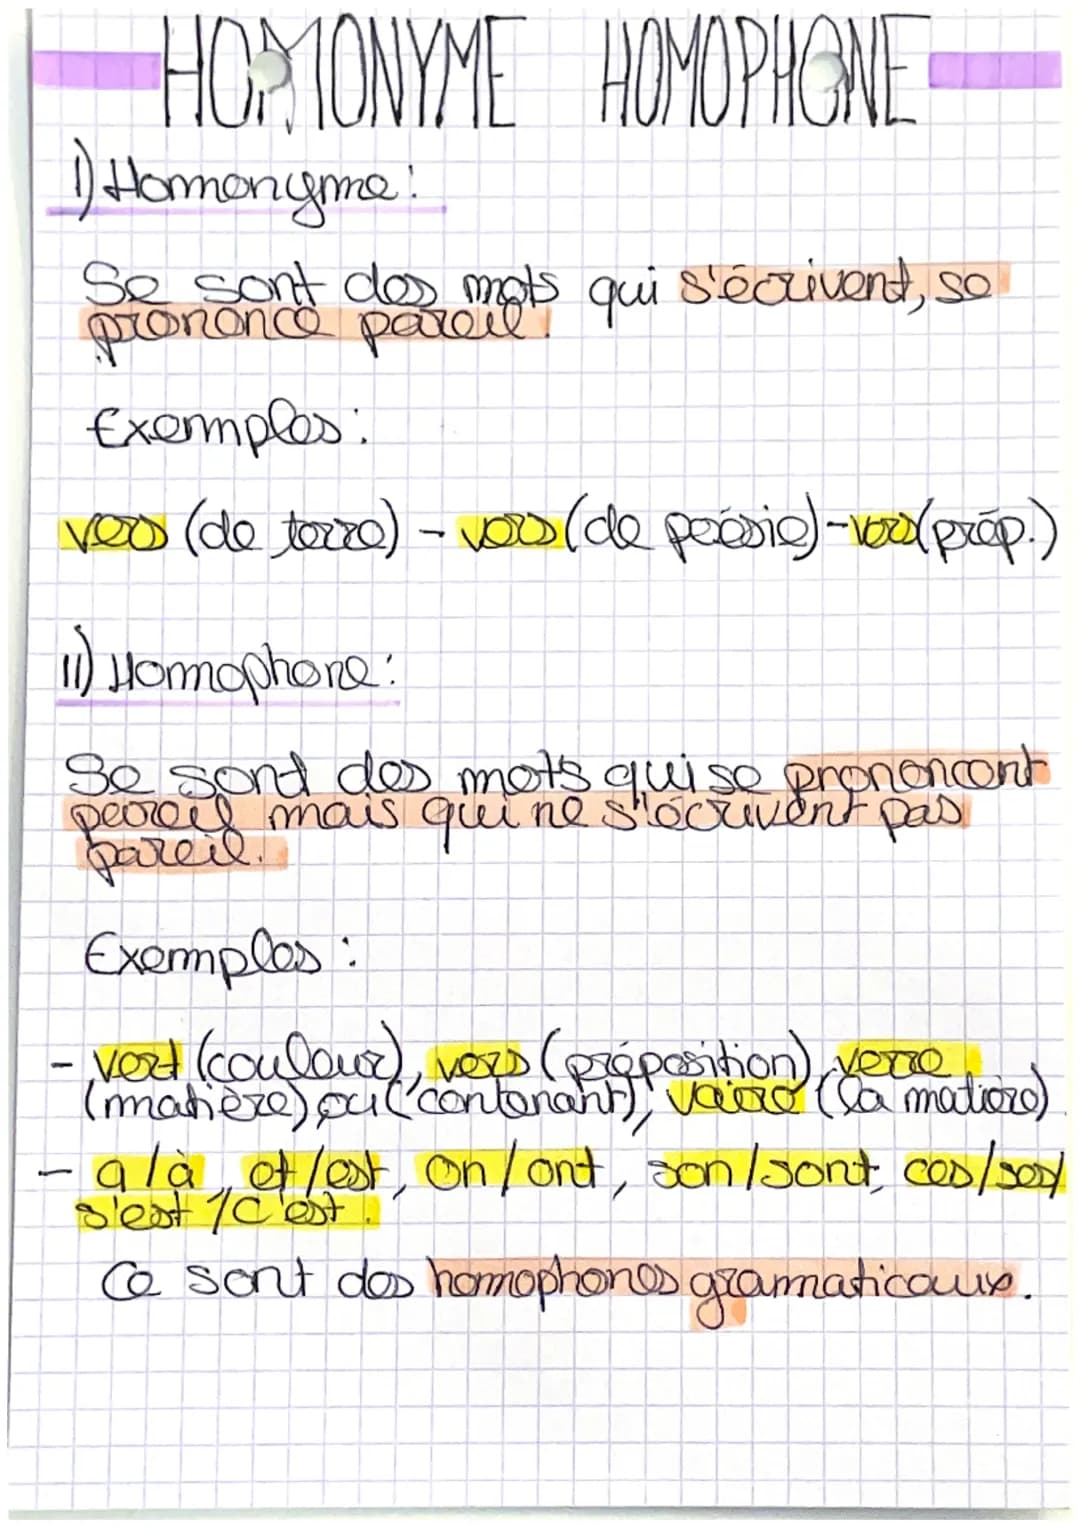 HOMONYME HOMOPHONE
I) Homonyme :
Se sont des mots qui s'écrivent, se
prononce pareil.
Exemples :
vers (de terre) - vers (de poésie) - vers (prép.)
II) Homophone :
Se sont des mots qui se prononcent
pareil mais qui ne s'écrivent pas
pareil.
Exemples :
- vert (couleur), vers (préposition), verre
(matière) ou (contenant), vaire (la matière)
- a/à, et/est, on/ont, son/sont, ces/ses/
s'est/c'est.
Ce sont des homophones gramaticaux.